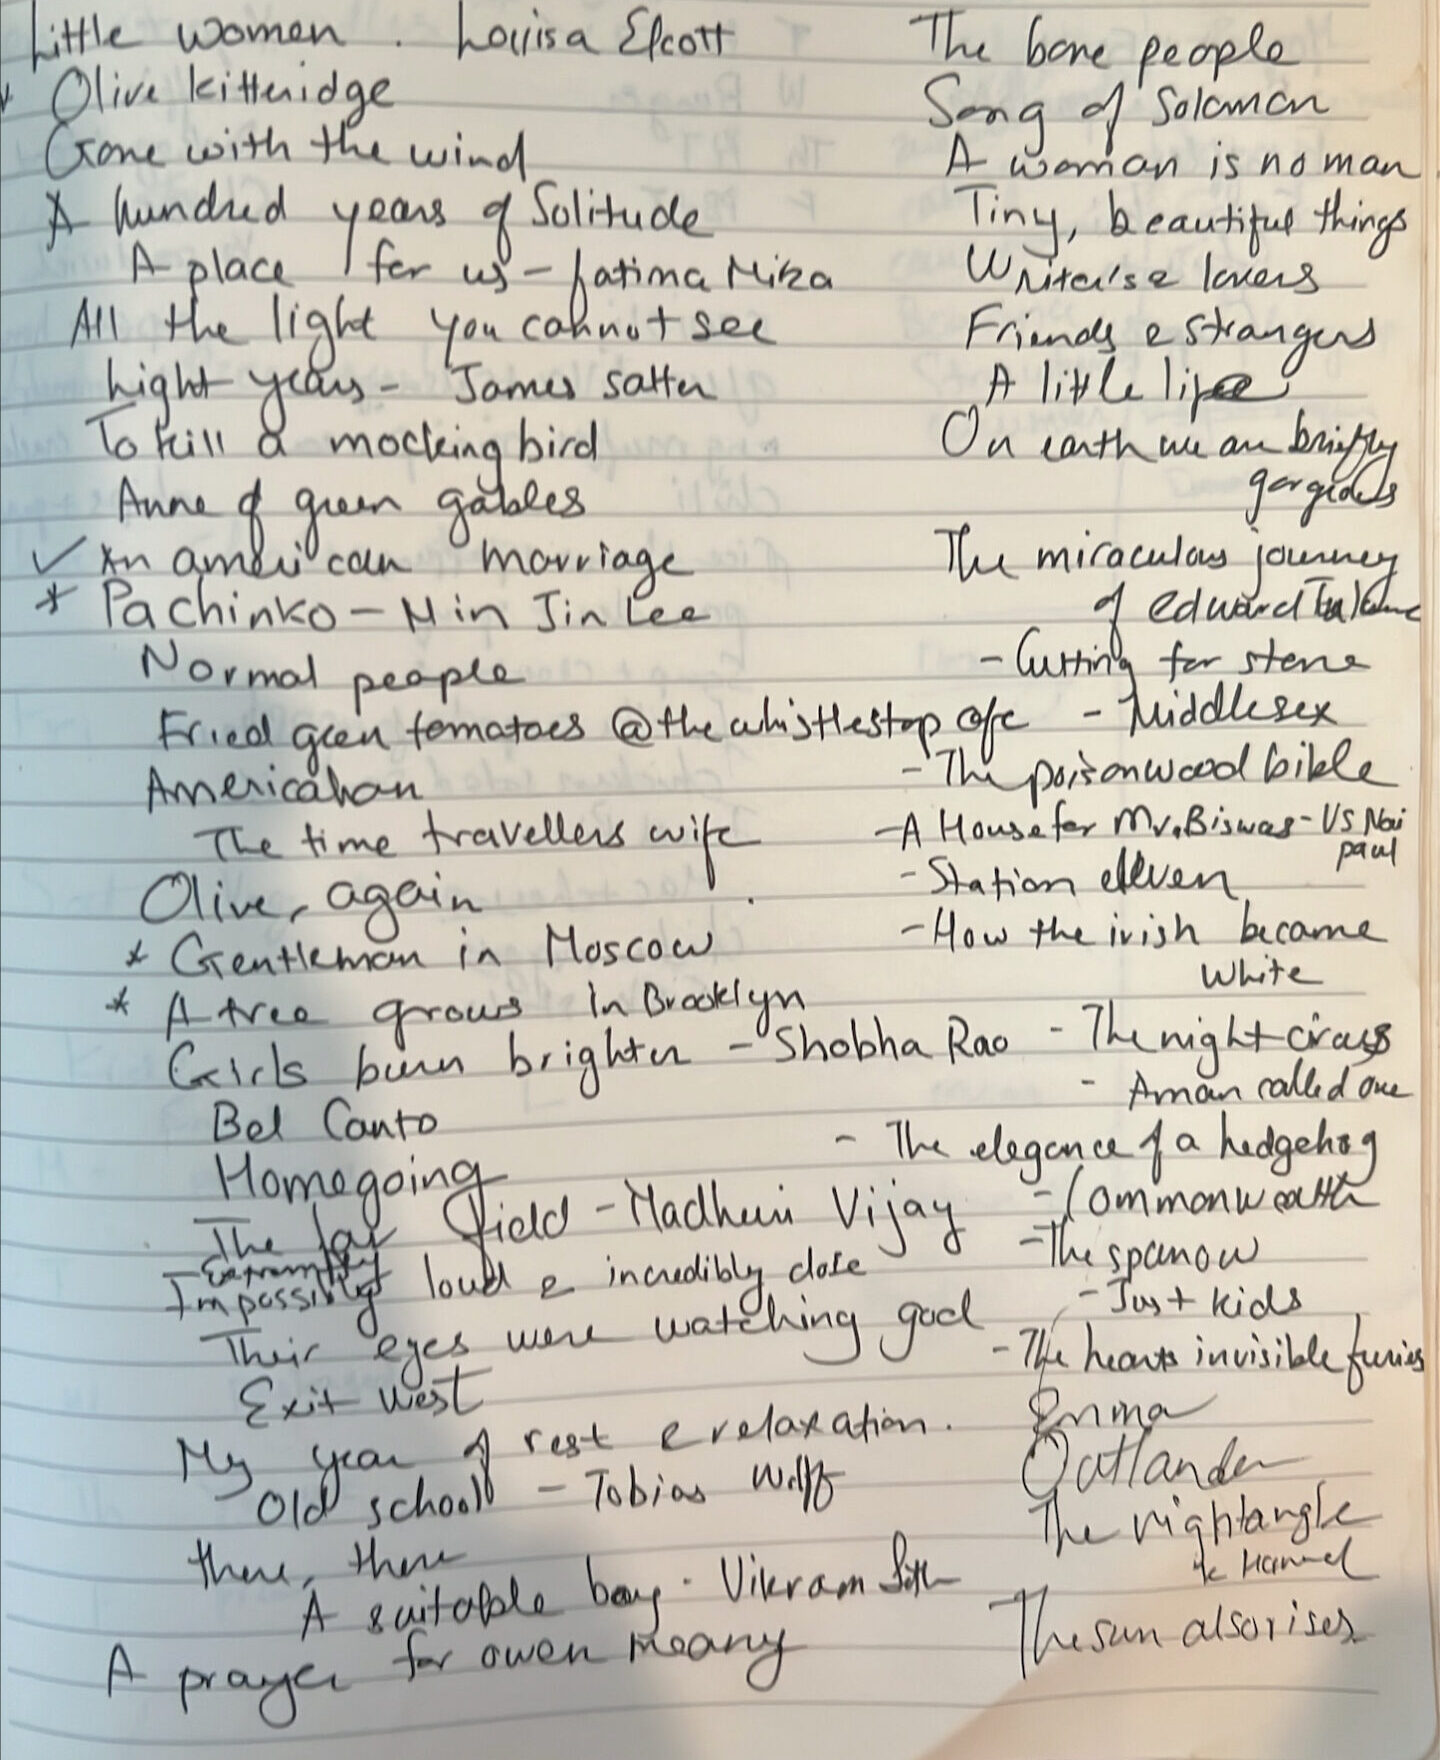 Little women . Louisa Elcott
* Olive kitteridge
Gone with the wind
A hundred years of Solitude
A place for us - fatima Mirza
All the light you cannot see
Light years - James Salter
To kill a mockingbird
Anne of green gables
✓ An american marriage
* Pachinko - Min Jin Lee
Normal people
Fried green tomatoes @ the whistlestop cafe
Americahan
The time travellers wife
Olive, again
* Gentleman in Moscow
* A tree grows in Brooklyn
Girls burn brighter - Shobha Rao
Bel Canto
Homegoing
The far field - Madhuri Vijay
Extremely
Impossibly loud & incredibly close
Their eyes were watching god
Exit west
My year of rest & relaxation.
Old school - Tobias Wolff
there, there
A suitable boy - Vikram Seth
A prayer for owen meany
The bone people
Song of Solomon
A woman is no man
Tiny, beautiful things
Writers & lovers
Friends & strangers
A little life
On earth we are briefly
gorgeous
The miraculous journey
of edward Tulane
- Cutting for stone
- Middlesex
- The poisonwood bible
- A House for Mr. Biswas - VS Nai
paul
- Station eleven
- How the irish became
White
- The night circus
- A man called ove
- The elegance of a hedgehog
- Commonwealth
- The sparrow
- Just kids
- The hearts invisible furies
Emma
Outlander
The nightangle
Hannah
The sun also rises